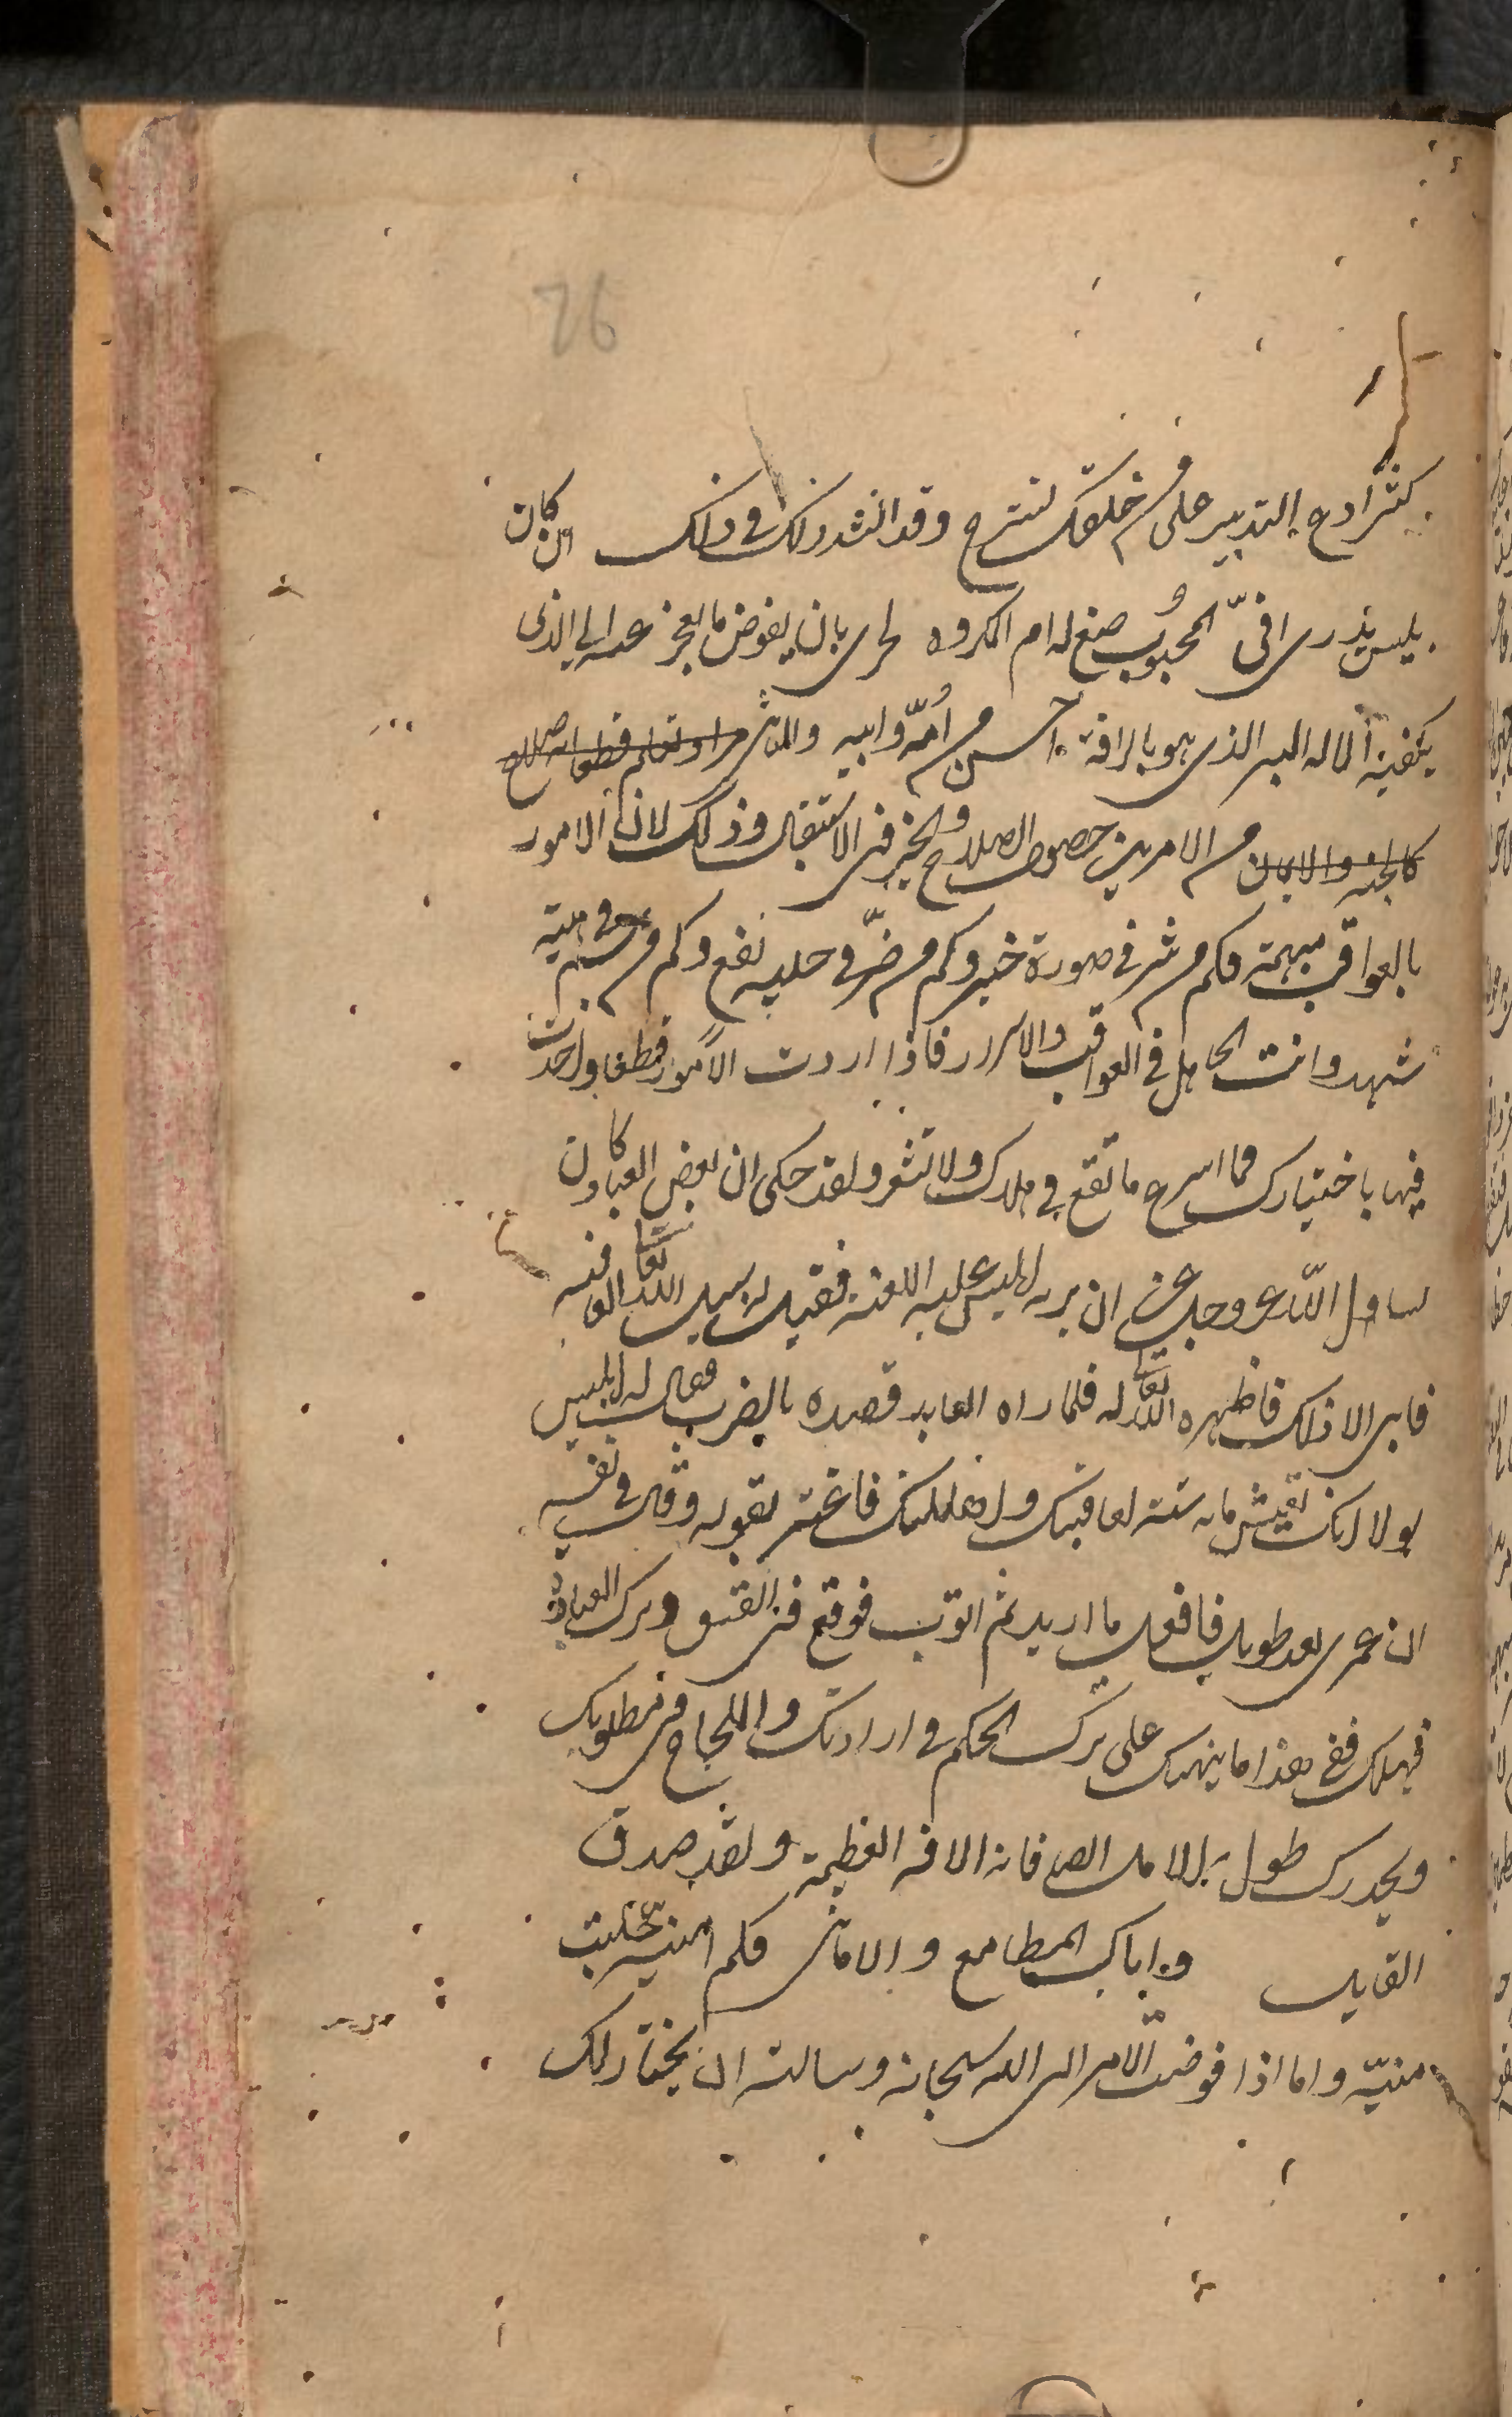 26
كثرا دع التدبير على من خلقك تسترح وقد انشدوا لك في ذلك ان من كان
ليس يدرى افى المحبوب صنع له ام المكروه لحرى بان يفوض ما يعجز عنه الى الذى
يكفيه الاله البر الذى هو بالرافة احسن من امه وابيه والثانى
كالجنه والايمان من الامرين حصول الصلاح والخير فى الاستقبال وذلك لان الامور
بالعواقب مبهمة فكم من شر في صورة خير وكم من ضر في حليه نفع وكم من سم في هيئه
شهد وانت الجاهل في العواقب والاسرار فاذا اردت الامور قطعا واخذت
فيها باختيارك فما اسرع ما تقع في هلاك ولا تشعر ولقد حكى ان بعض العباد كان
يساول الله عز وجل ان يريه ابليس عليه اللعنه فقيل له سل الله تعالى العافيه
فابى الا ذلك فاظهره الله تعالى له فلما راه العابد قصده بالضرب فقال له ابليس
لولا انك تعيش مايه سنه لعاقبتك ولاهلكتك فاغتر بقوله وقال في نفسه
ان عمرى بعد طويل فافعل ما اريد ثم اتوب فوقع فى الفسق وترك العبادة
فهلك ففي هذا ما ينهك على ترك الحكم في ارادتك واللجاج في مطلوبك
ويحذرك طول الامل ايضا فانه الافه العظيمة ولقد صدق
القايل واياك المطامع والامانى فكم امنيه جلبت
منيّه واما اذا فوضت الامر الى الله سبحانه وسالته ان يختار لك